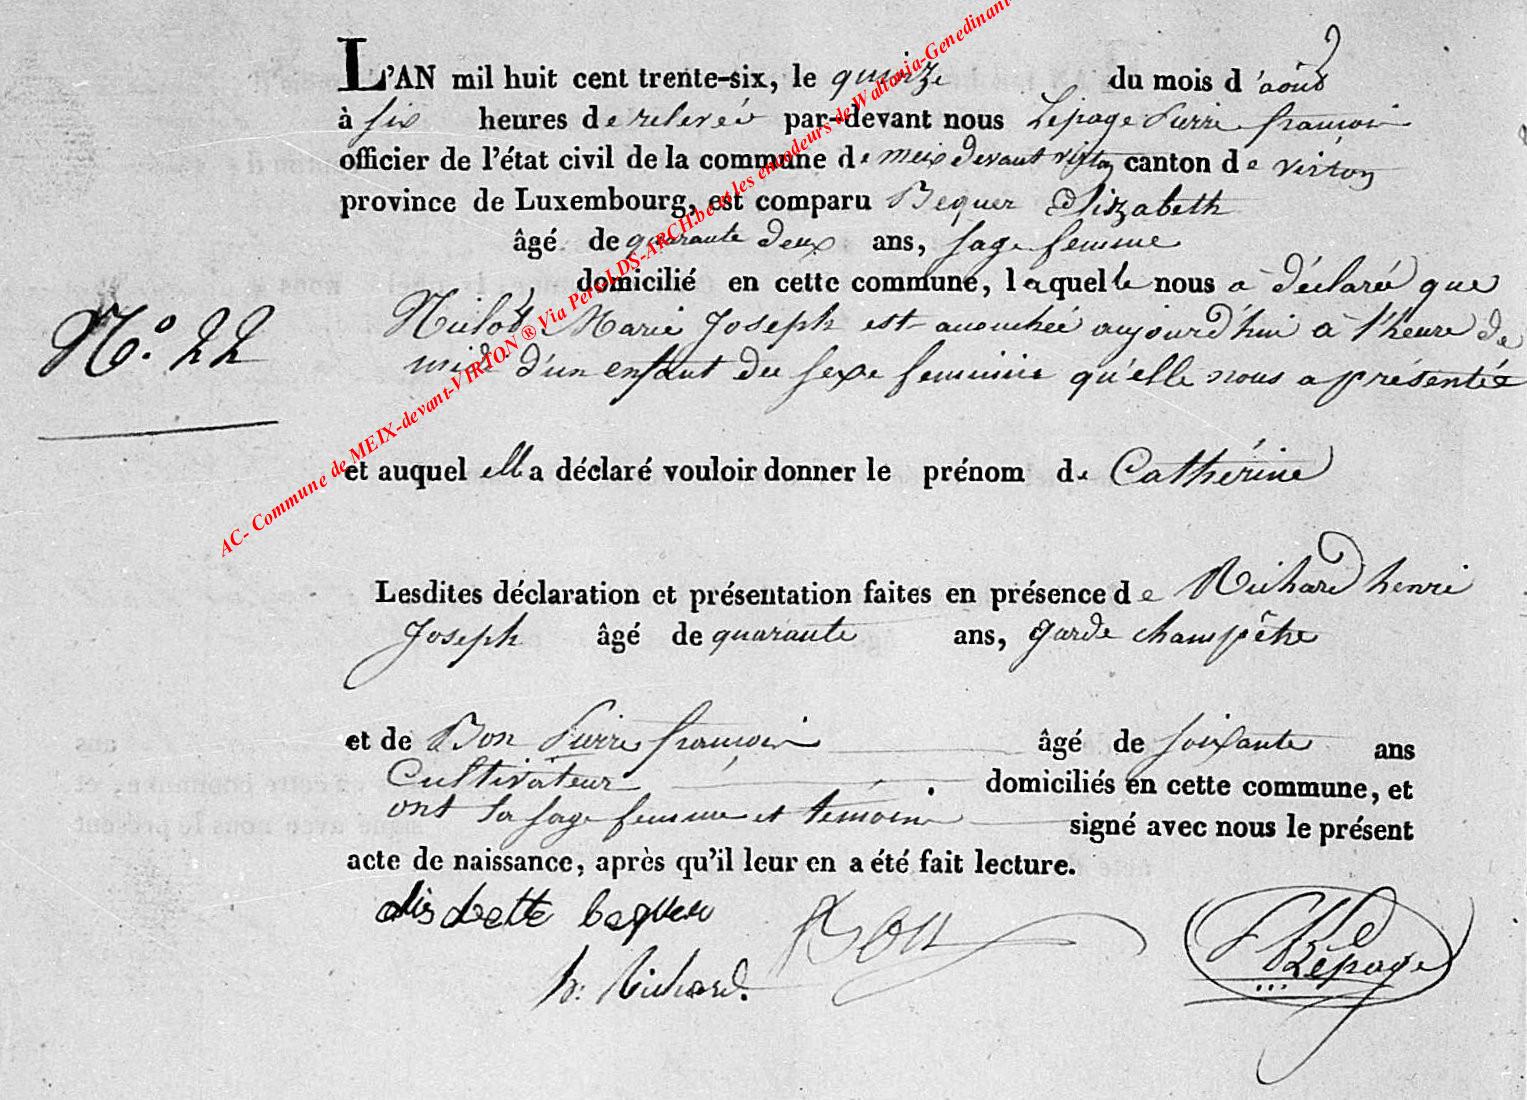 L'AN mil huit cent trente-six, le quinze du mois d'août
à six heures de relevée par-devant nous Lepage Pierre françois
officier de l'état civil de la commune de meix devant virton canton de virton
province de Luxembourg, est comparu Bequer Elizabeth
âgé de quarante deux ans, sage femme
domicilié en cette commune, laquelle nous a déclarée que
Marie Joseph est acouchée aujourd'hui à l'heure de
midi d'un enfant du sexe feminin qu'elle nous a présentée
N.° 22
et auquel elle a déclaré vouloir donner le prénom de Cathérine
Lesdites déclaration et présentation faites en présence de Richard henri
Joseph âgé de quarante ans, garde champêtre
et de Bon Pierre françois âgé de soixante ans
Cultivateur domiciliés en cette commune, et
ont la sage femme et témoins signé avec nous le présent
acte de naissance, après qu'il leur en a été fait lecture.
Bon
h: Richard.
Lepage
AC- Commune de MEIX-devant-VIRTON ® Via Pers-LDS-ARCH.be et les encodeurs de Wallonia-Genedinant